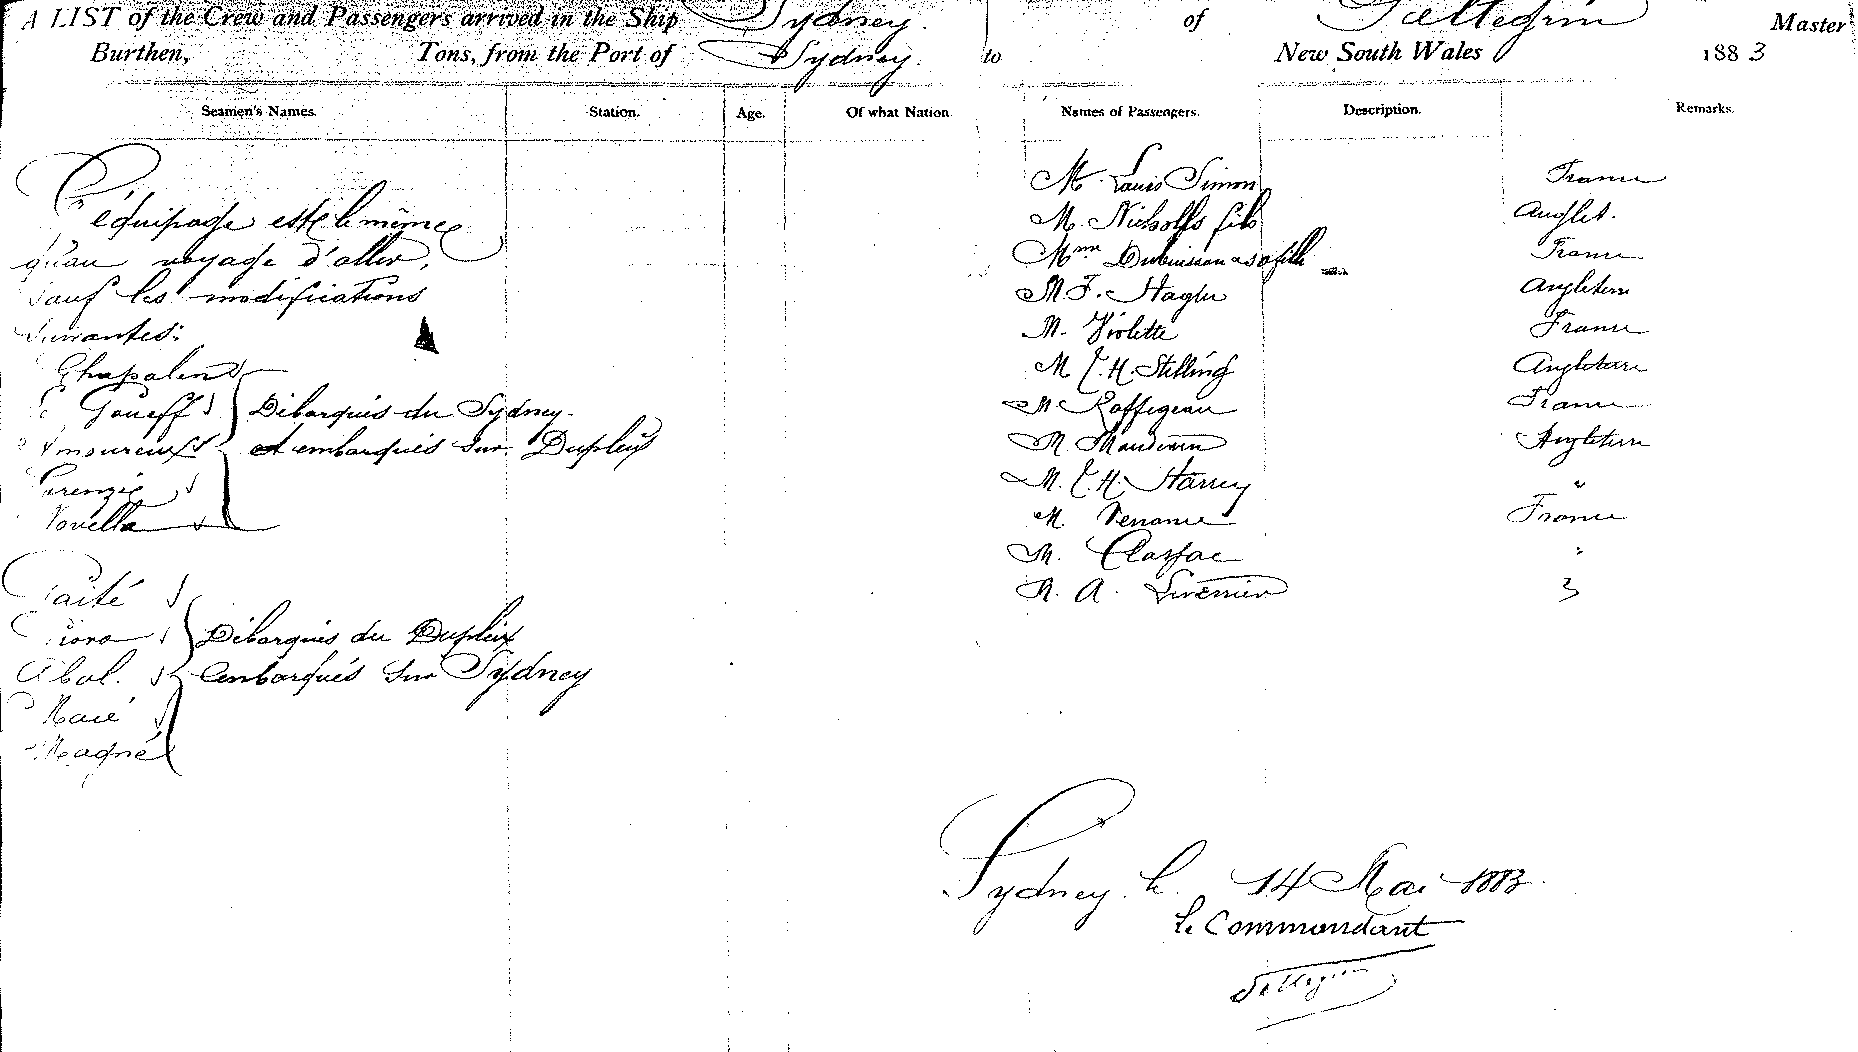 A LIST of the Crew and Passengers arrived in the Ship Sydney. of Pellegrin Master
Burthen, Tons, from the Port of Sydney. to New South Wales 1883
Seamen's Names. Station. Age. Of what Nation Names of Passengers. Description. Remarks.
L'équipage est le même
qu'au voyage d'aller,
sauf les modifications
suivantes:
Chapalend
Goueff
Amoureux
Débarqués du Sydney.
et embarqués sur Dupleix
Novella
Taité
Abal.
Débarqués du Dupleix
embarqués sur Sydney
Magné
M. Louis Simon France
M. Nicholls fils Anglet.
Mme Dubuisson & sa fille France
M. F. Hagln Angleterre
M. Violette France
M. C. H. Stilling Angleterre
M. Roffigeau France
M. Angleterre
M. C. H. Harrey "
M. France
M. "
M. A.
Sydney le 14 Mai 1883.
Le Commandant
Pellegrin